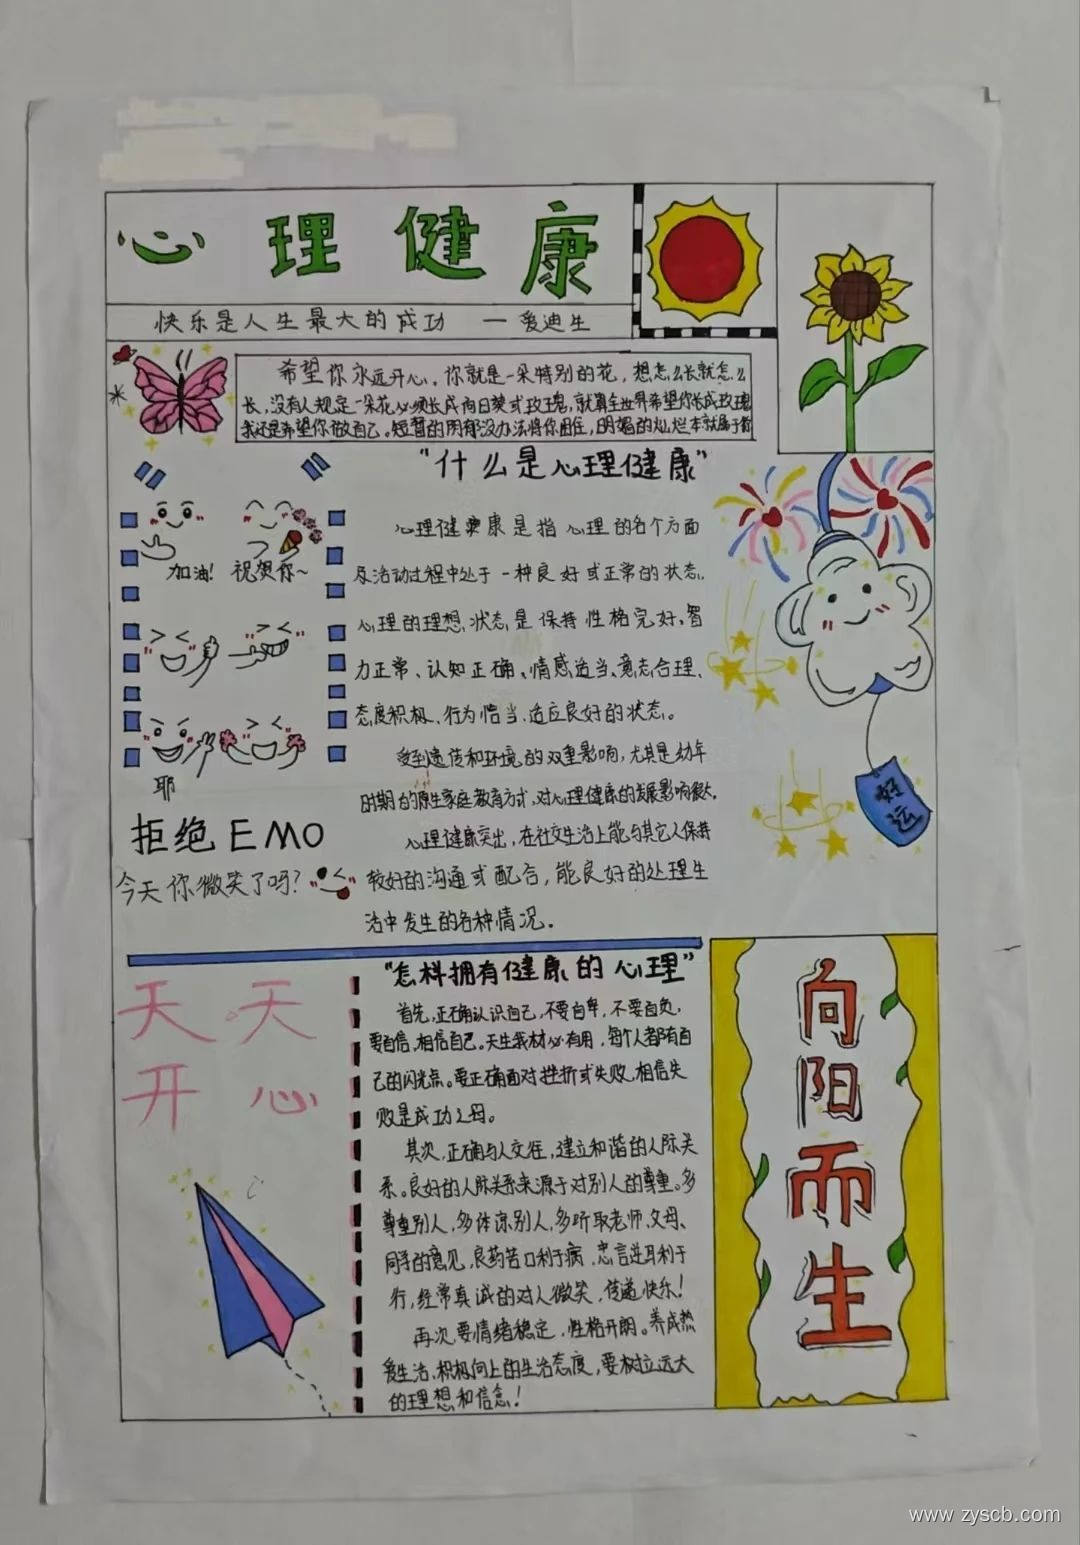 心理健康
快乐是人生最大的成功 — 爱迪生
希望你永远开心，你就是一朵特别的花，想怎么长就怎么
长，没有人规定一朵花必须长成向日葵或玫瑰，就算全世界希望你长成玫瑰
我还是希望你做自己。短暂的雨都没办法将你困住，明媚的灿烂本就属于你
"什么是心理健康"
心理健康是指心理的各个方面
及活动过程中处于一种良好或正常的状态。
心理的理想状态是保持性格完好、智
力正常、认知正确、情感适当、意志合理、
态度积极、行为恰当、适应良好的状态。
受到遗传和环境的双重影响，尤其是幼年
时期的原生家庭教育方式，对心理健康的发展影响很大。
心理健康突出，在社交生活上能与其它人保持
较好的沟通或配合，能良好的处理生
活中发生的各种情况。
加油！ 祝贺你~
耶
拒绝EMO
今天你微笑了吗？
好运
天天
开心
"怎样拥有健康的心理"
首先，正确认识自己，不要自卑，不要自负，
要自信，相信自己。天生我材必有用，每个人都有自
己的闪光点。要正确面对挫折或失败，相信失
败是成功之母。
其次，正确与人交往，建立和谐的人际关
系。良好的人际关系来源于对别人的尊重。多
尊重别人，多体谅别人，多听取老师、父母、
同学的意见，良药苦口利于病，忠言逆耳利于
行，经常真诚的对人微笑，传递快乐！
再次，要情绪稳定，性格开朗。养成热
爱生活、积极向上的生活态度，要树立远大
的理想和信念！
向
阳
而
生
www.zyscb.com